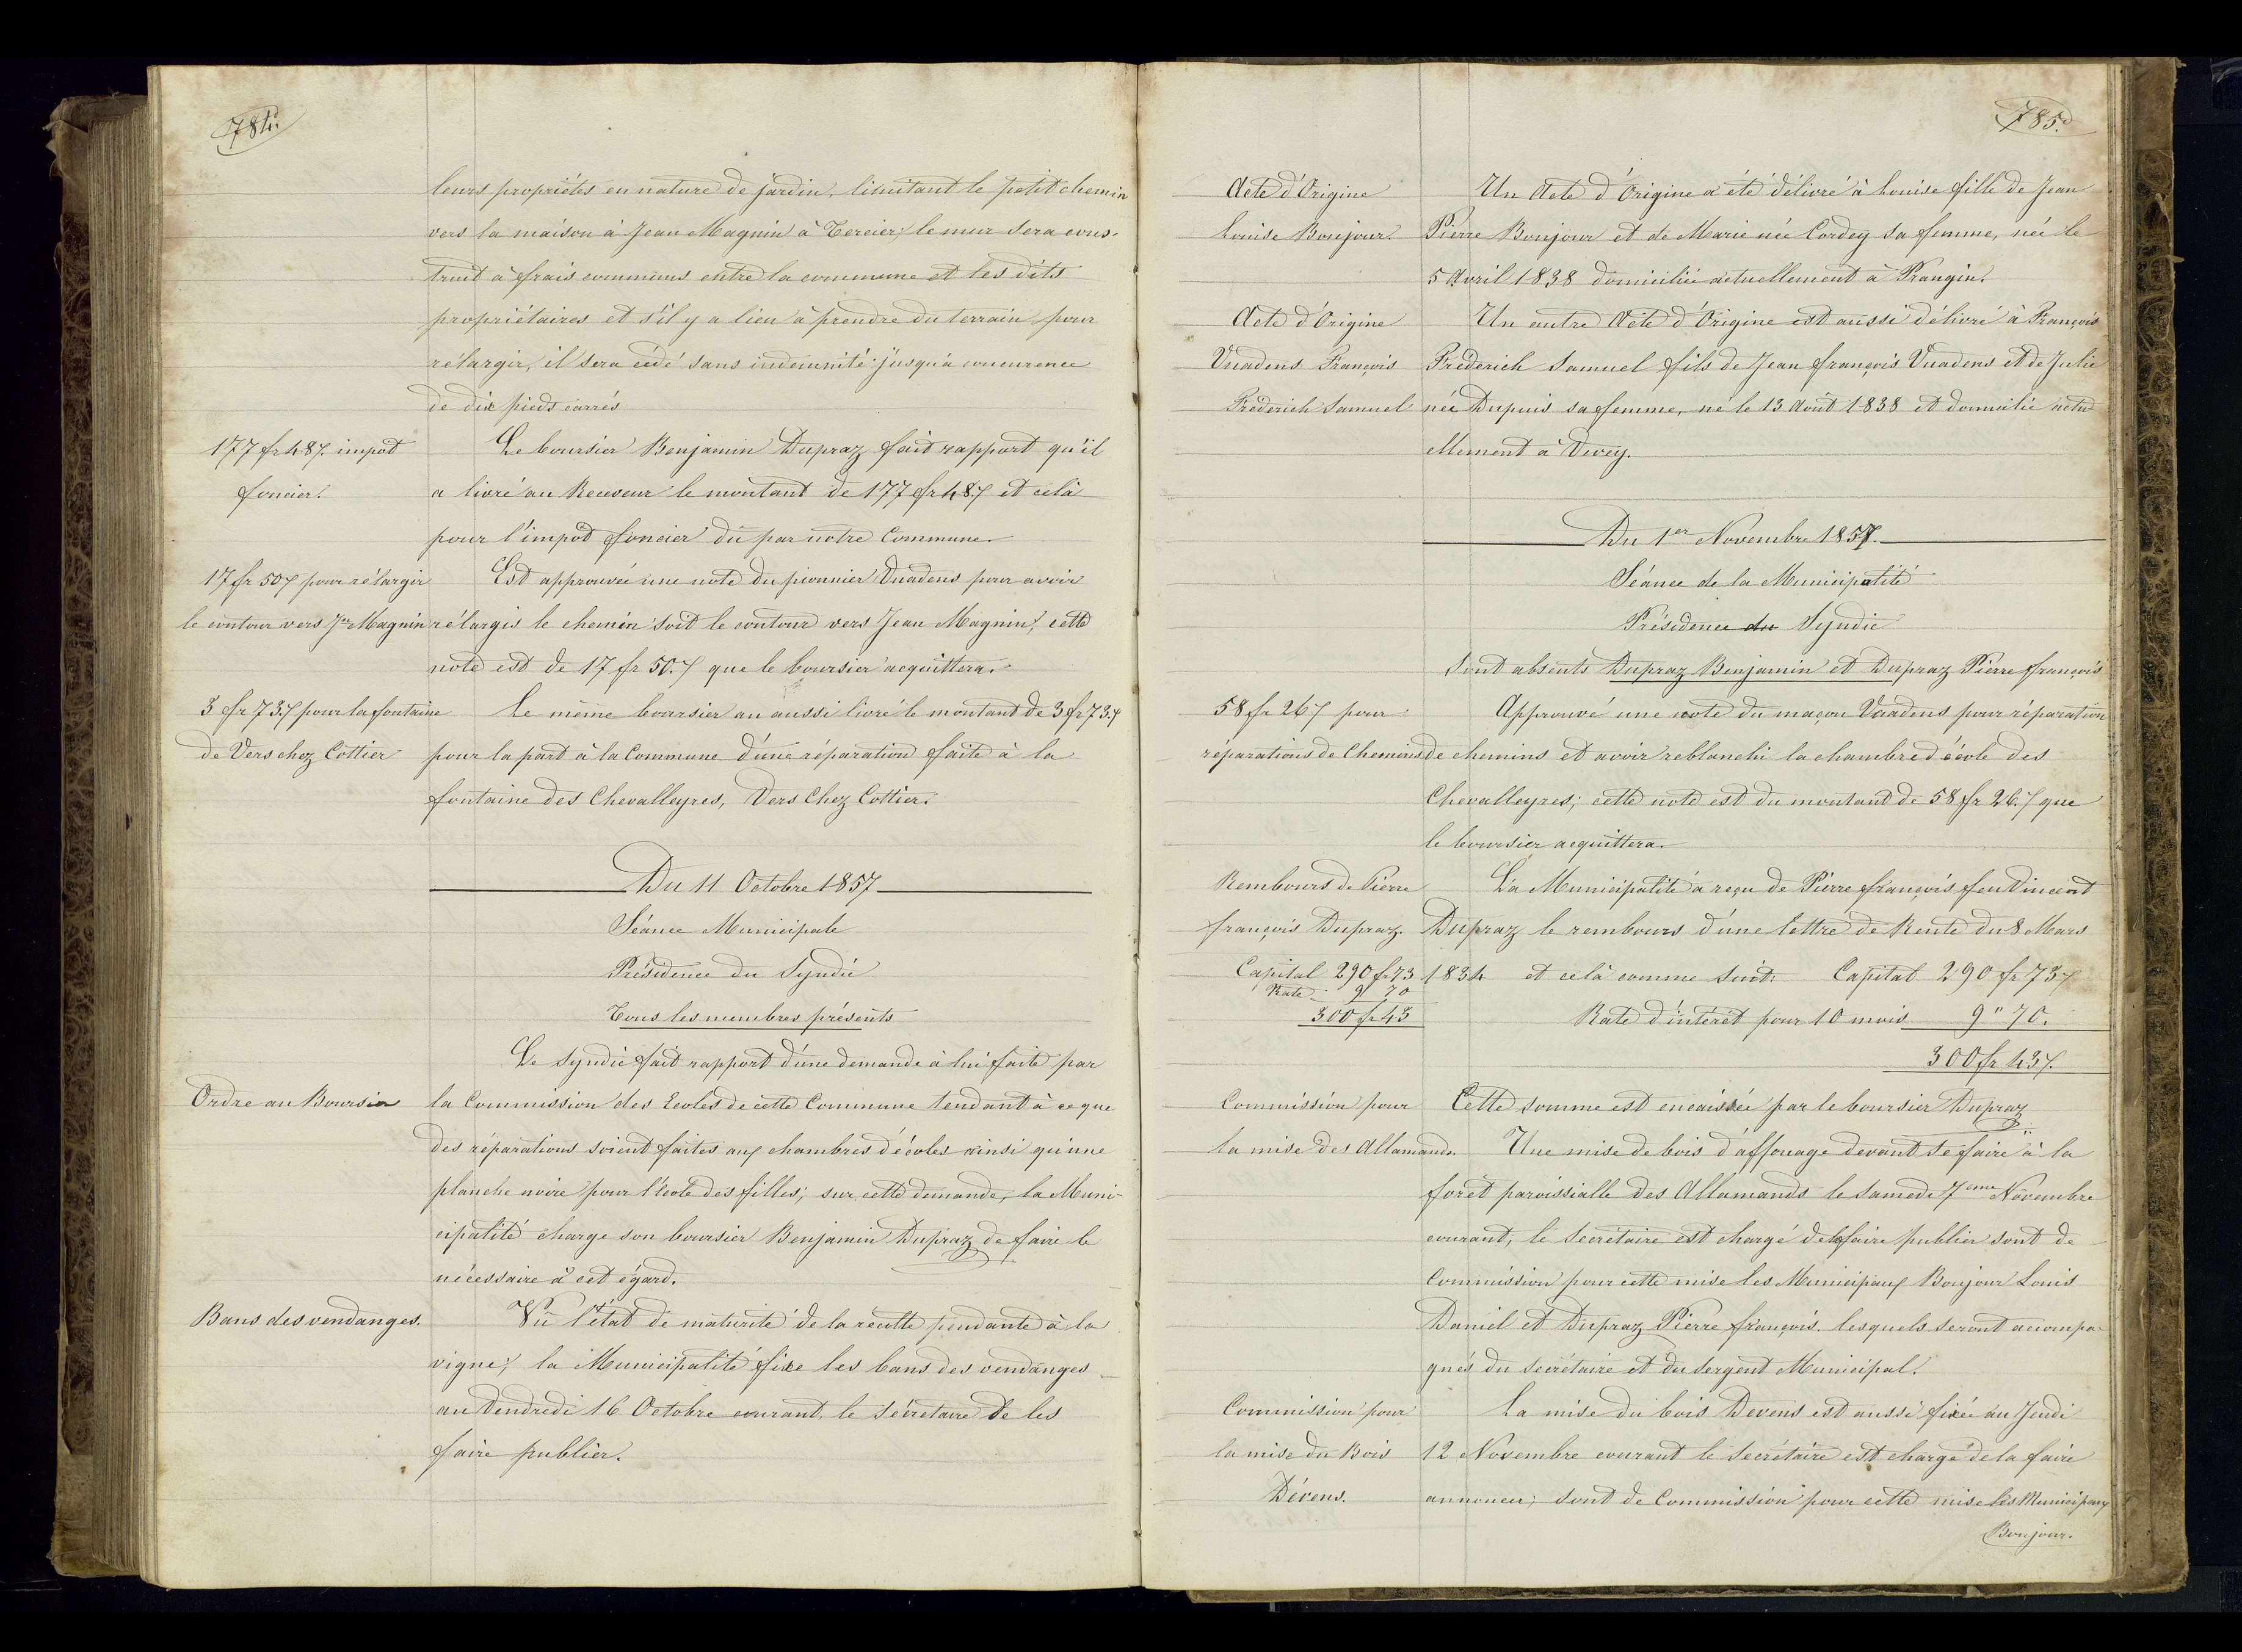 784.
leurs propriétés en nature de jardin, limitant le petit chemin
vers la maison à Jean Magnin à Tercier; le mur sera cons-
truit à frais communs entre la commune et les dits
propriétaires et s'il y a lieu à prendre du terrain pour
rélargir, il sera cédé sans indemnité jusqu'a concurence
de dix pieds carrés
177 fr 48 7. impot
foncier.
Le boursier Benjamin Dupraz fait rapport qu'il
a livré au Receveur le montant de 177 fr 48 7 et celà
pour l'impot foncier dû par notre Commune.
17 fr 50 7 pour rélargir
le contour vers Jn Magnin
Est approuvée une note du pionnier Vuadens pour avoir
rélargis le chemin soit le contour vers Jean Magnin, cette
note est de 17 fr 50. 7 que le boursier acquittera.
3 fr 73. 7 pour la fontaine
de Vers chez Cottier
Le même boursier an aussi livré le montant de 3 fr 73. 7
pour la part à la Commune d'une réparation faite à la
fontaine des Chevalleyres, Vers Chez Cottier.
Du 11 Octobre 1857
Séance Municipale
Présidence du Syndic
Tous les membres présents
Le Syndic fait rapport d'une demande à lui faite par
Ordre au Boursier
la Commission des Ecoles de cette Commune tendant à ce que
des réparations soient faites aux chambres d'écoles ainsi qu'une
planche noire pour l'école des filles; sur cette demande, la Muni-
cipalité charge son boursier Benjamin Dupraz de faire le
nécessaire à cet égard.
Bans des vendanges.
Vû l'état de maturité de la récolte pendante à la
vigne; la Municipalité fixe les bans des vendanges
au Vendredi 16 Octobre courant, le sécretaire de les
faire publier.
785.
Acte d'Origine
Louise Bonjour.
Un Acte d'Origine a été délivré à Louise fille de Jean
Pierre Bonjour et de Marie née Cordey sa femme, née le
5 Avril 1838 domiciliée actuellement à Prangin.
Acte d'Origine
Vuadens François
Frederich Samuel
Un autre Acte d'Origine est aussi délivré à François
Frederich Samuel fils de Jean françois Vuadens et de Julie
née Dupuis sa femme, né le 13 Août 1838 et domicilié actu
ellement à Vevey.
Du 1er Novembre 1857.
Séance de la Municipalité
Présidence du Syndic
Sont absents Dupraz Benjamin et Dupraz Pierre françois
58 fr 26 7 pour
réparations de Chemins
Approuvé une note du maçon Vuadens pour réparation
de chemins et avoir reblanchi la chambre d'école des
Chevalleyres; cette note est du montant de 58 fr 26. 7 que
le boursier acquittera.
Rembours de Pierre
françois Dupraz.
Capital 290 fr 73
Rate 9 70
300 fr 43
La Municipalité a reçu de Pierre françois feu Vincent
Dupraz le rembours d'une lettre de Rente du 8 Mars
1834 et celà comme suit: Capital 290 fr 73 7
Rate d'intérêt pour 10 mois 9 " 70.
300 fr 43 7.
Cette somme est encaissée par le boursier Dupraz
Commission pour
la mise des Allamands.
Une mise de bois d'affouage devant se faire à la
forêt paroissialle des Allamands le Samedi 7eme Novembre
courant, le Secrétaire est chargé de la faire publier sont de
Commission pour cette mise les Municipaux Bonjour Louis
Daniel et Dupraz Pierre françois. lesquels seront accompa
gnés du Secrétaire et du Sergent Municipal.
Commission pour
la mise du Bois
Dévens.
La mise du bois Devens est aussi fixée au Jeudi
12 Novembre courant le Secrétaire est chargé de la faire
annoncer; sont de Commission pour cette mise les Municipaux
Bonjour.